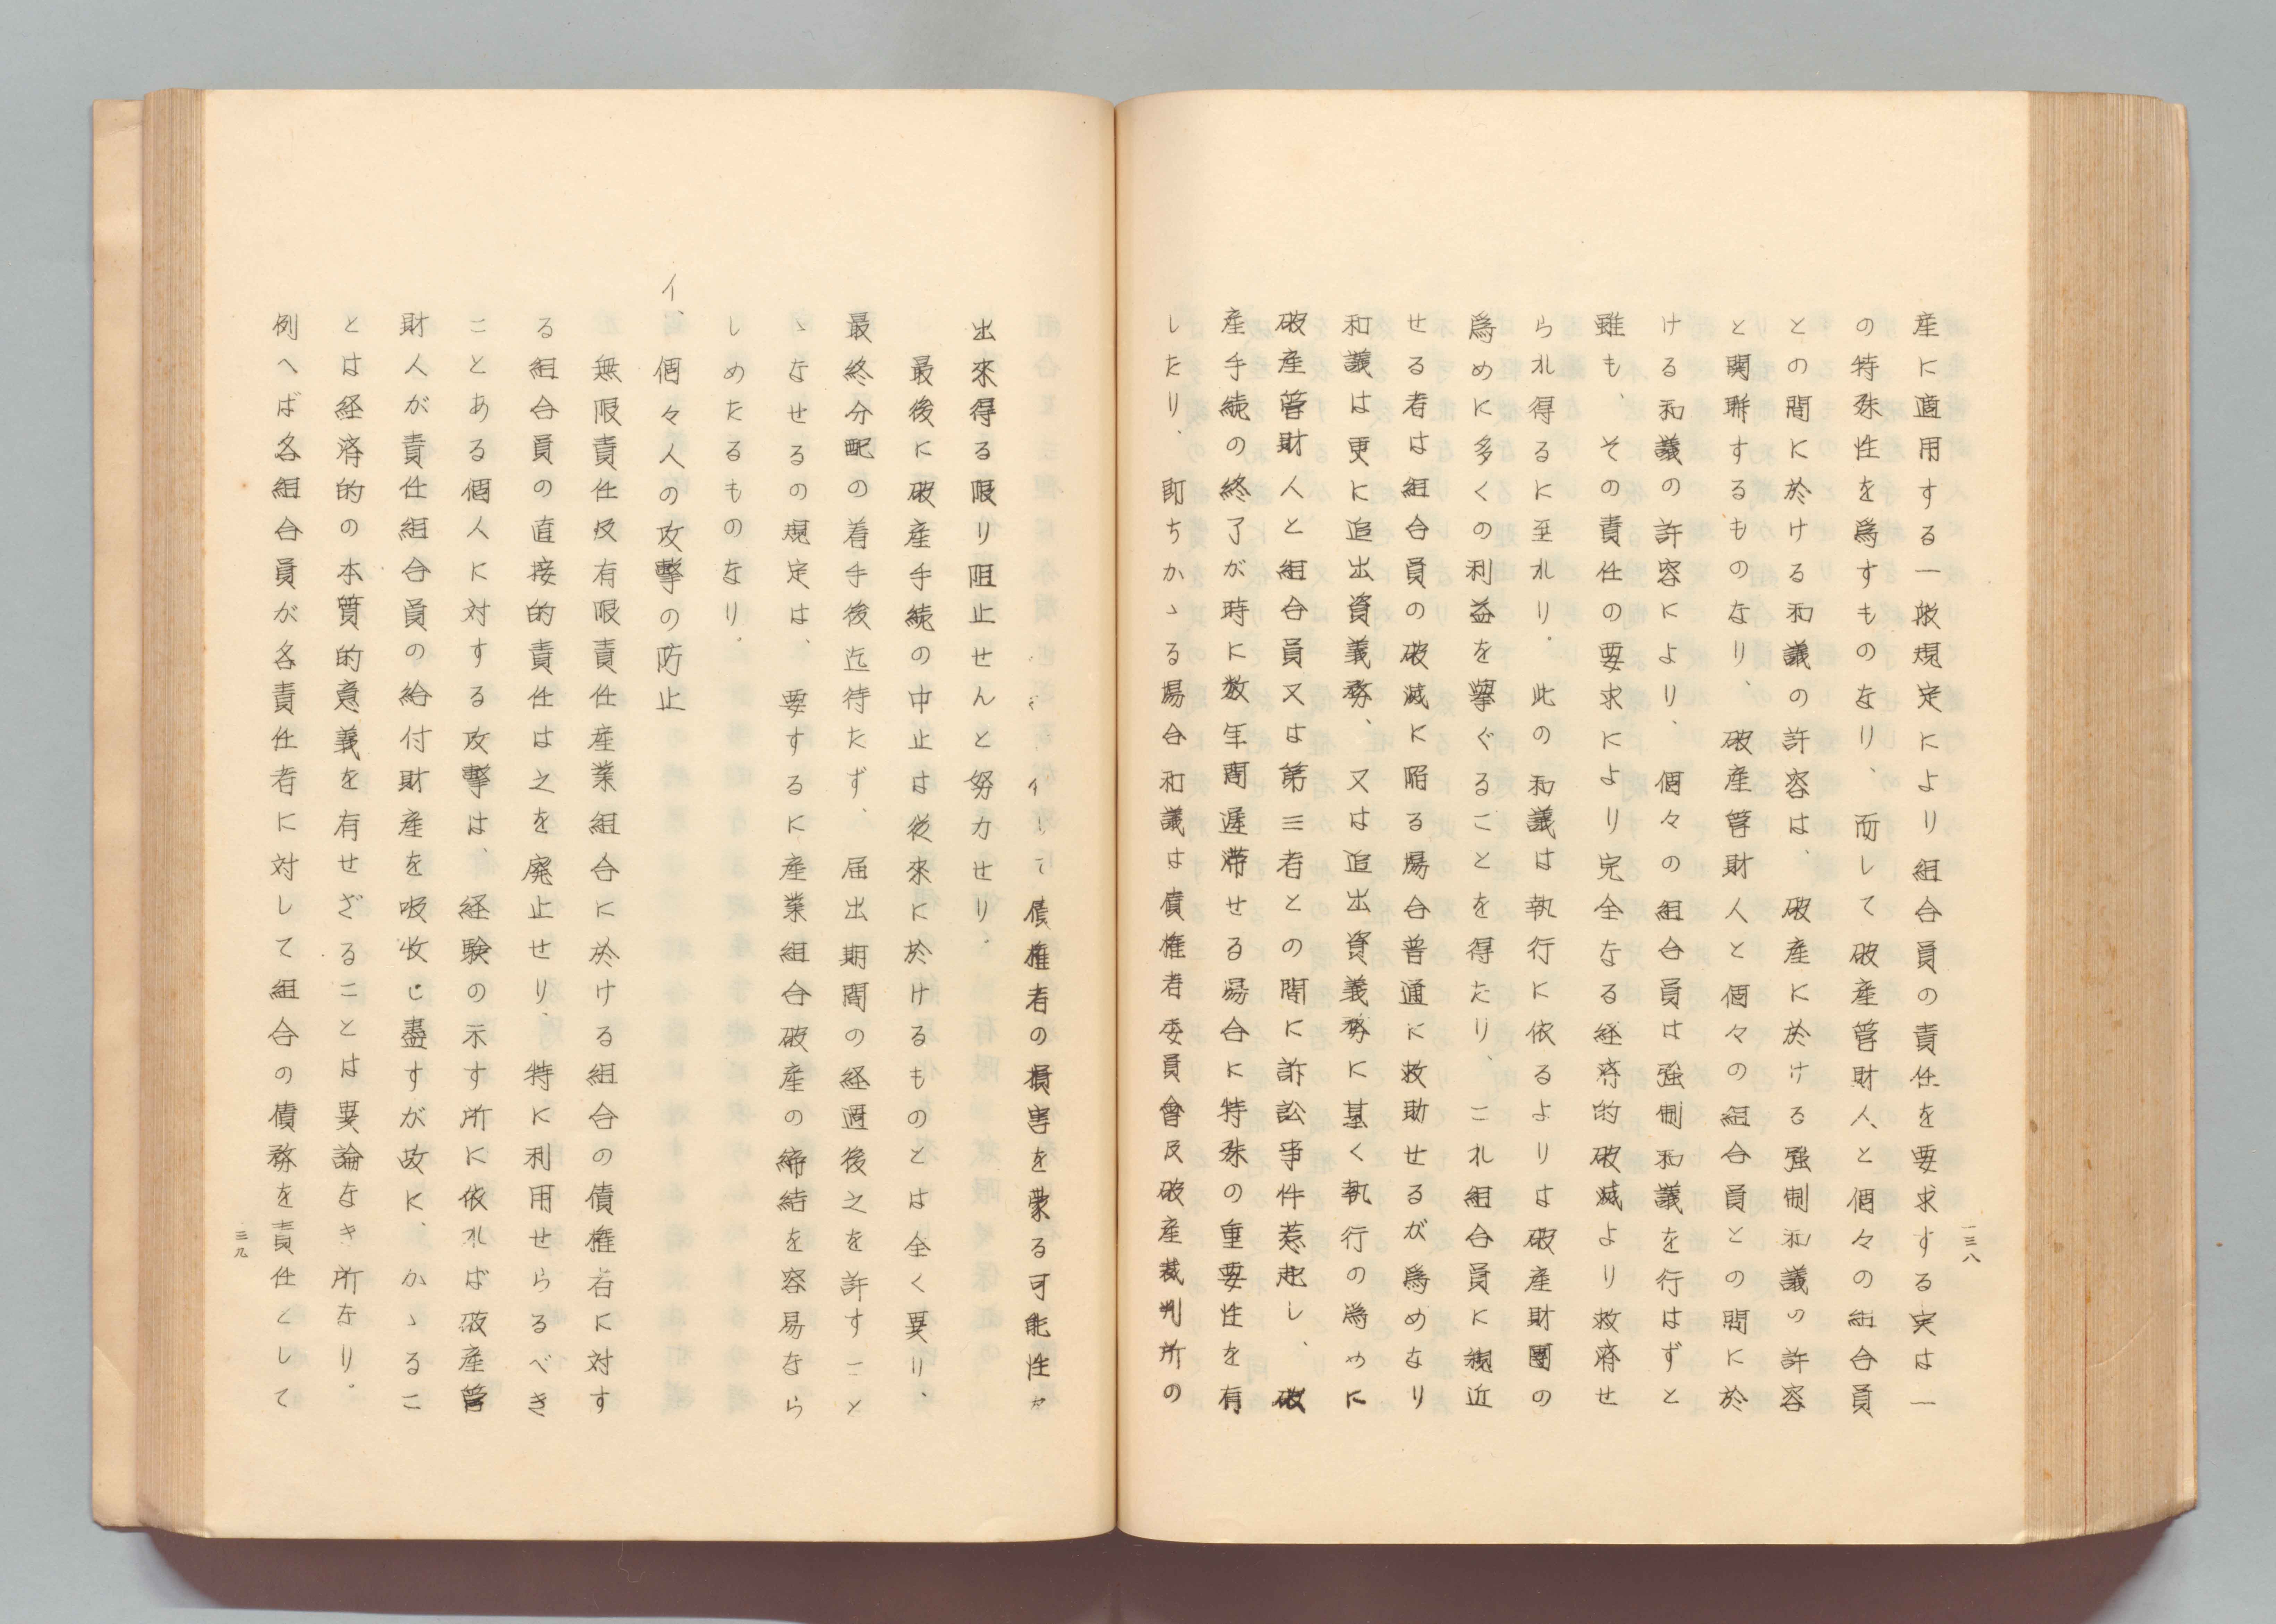 産に適用する一般規定により組合員の責任を要求する実は一
の特殊性を為すものなり、而して破産管財人と個々の組合員
との間に於ける和議の許容は、破産に於ける強制和議の許容
と関聯するものなり、破産管財人と個々の組合員との間に於
ける和議の許容により、個々の組合員は強制和議を行はずと
雖も、その責任の要求により完全なる経済的破滅より救済せ
られ得るに至れり。此の和議は執行に依るよりは破産財団の
為めに多くの利益を挙ぐることを得たり、これ組合員に親近
せる者は組合員の破滅に陥る場合普通に救助せるが為めなり
和議は更に追出資義務、又は追出資義務に基く執行の為めに
破産管財人と組合員又は第三者との間に訴訟事件惹起し、破
産手続の終了が時に数年間遅滞せる場合に特殊の重要性を有
したり、即ちかゝる場合和議は債権者委員會及破産裁判所の
一三八
て債権者の損害を蒙る可能性を
出來得る限り阻止せんと努力せり。
最後に破産手続の中止は従來に於けるものとは全く異り、
最終分配の着手後迄待たず、届出期間の経過後之を許すこと
ゝなせるの規定は、要するに産業組合破産の締結を容易なら
しめたるものなり。
イ、個々人の攻撃の防止
無限責任及有限責任産業組合に於ける組合の債権者に対す
る組合員の直接的責任は之を廃止せり、特に利用せらるべき
ことある個人に対する攻撃は、経験の示す所に依れば破産管
財人が責任組合員の給付財産を吸收し盡すが故に、かゝるこ
とは経済的の本質的意義を有せざることは異論なき所なり。
例へば各組合員が各責任者に対して組合の債務を責任として
三九